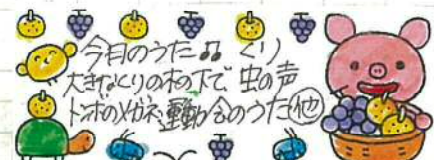 今月のうた♫ くり
大きなくりの木の下で 虫の声
トンボのメガネ 運動会のうた㊀他